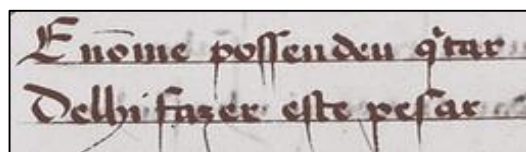 E nõme possendeu q̇tar
Delhi fazer este pesar